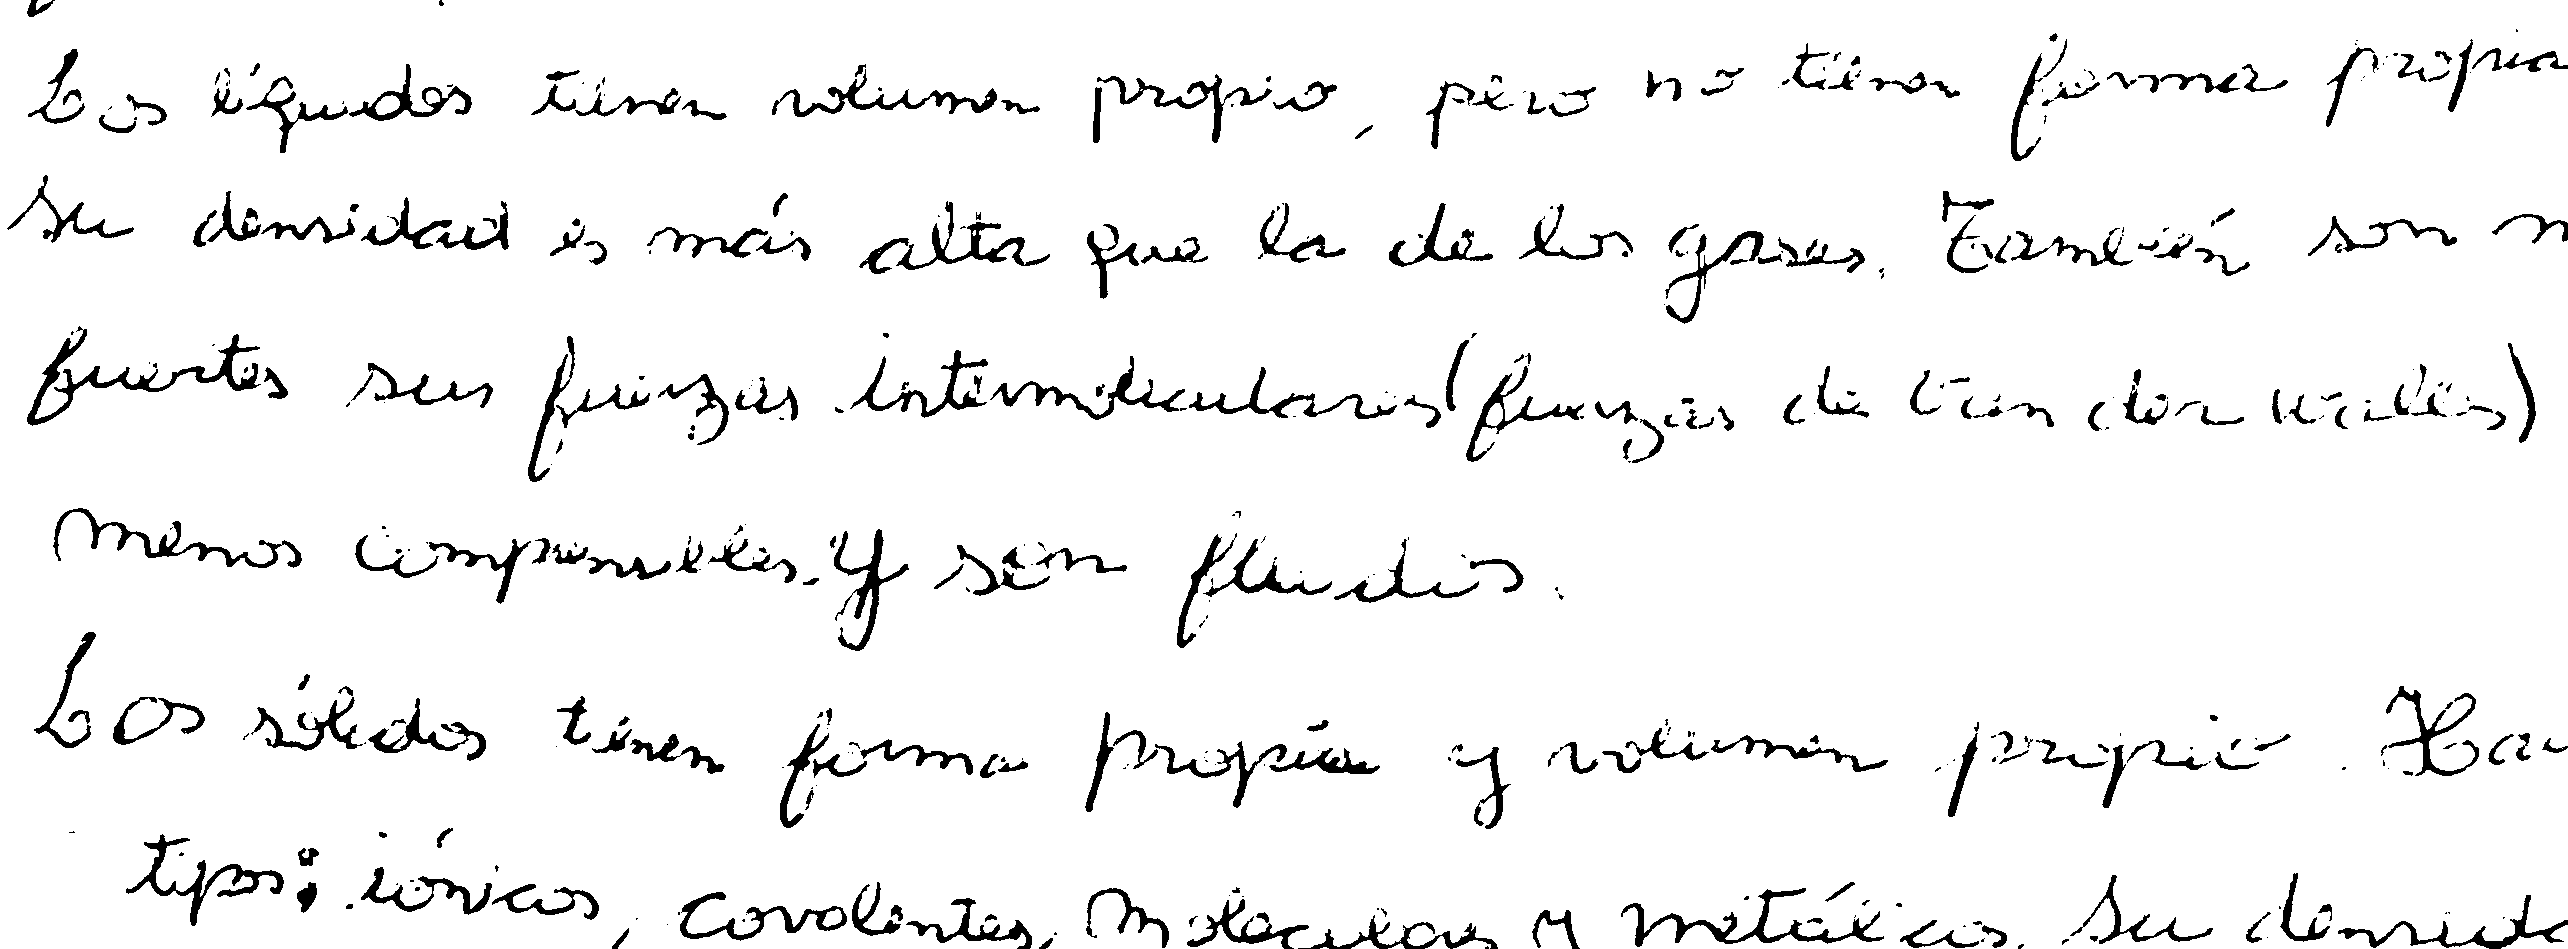 Los líquidos tienen volumen propio, pero no tienen forma propia
su densidad es más alta que la de los gases. También son
fuertes sus fuerzas intermoleculares (fuerzas de van der walles)
menos compensibles. Y son fluidos.
Los sólidos tienen forma propia y volumen propio. Hay
tipos: iónicos, covalentes, Moleculares y metálicos. Su densida